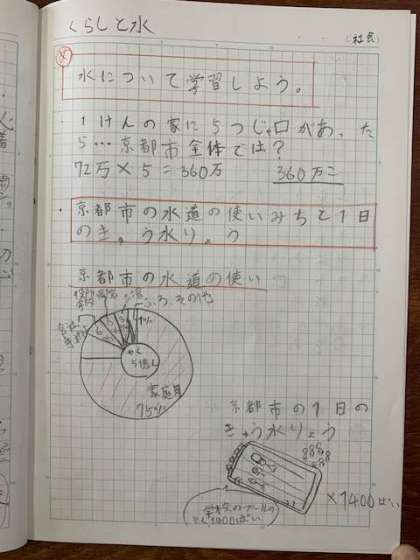 くらしと水
(社会)
水について学習しよう。
1けんの家に5つじゃ口があった
ら…京都市全体では?
72万×5=360万 360万こ
京都市の水道の使いみちと1日
のきゅう水りょう
京都市の水道の使い
ふろ、その他
家庭用
75%
京都市の1日の
きゅう水りょう
×1400ぱい
学校のプールの